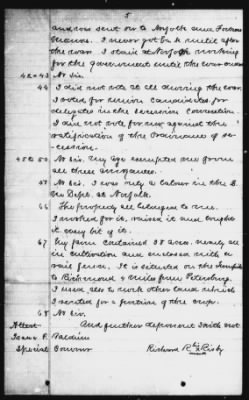 5
and was sent on to Norfolk and Fortress
Monroe. I never got back until after
the war. I staid at Norfolk working
for the government until the war ended
42 & 43 No sir.
44 I did not vote at all during the war.
I voted for union candidates for
delegates in the secession Convention
I did not vote for nor against the
ratification of the Ordinance of se-
cession.
45 & 50 No sir. My age exempted me from
all these
47 No sir, I was only a laborer in the
Dept. at Norfolk.
66 The property all belonged to me.
I worked for it, raised it and bought
it every bit of it.
67 My farm contained 38 acres. nearly all
in cultivation and enclosed with a
rail fence. It is situated on the
to Richmond miles from Petersburg.
I used also to work other land which
I rented for a portion of the crop.
68 No sir.
Attest And further deponent saith not.
Isaac P. Baldwin
Special Richard his X mark